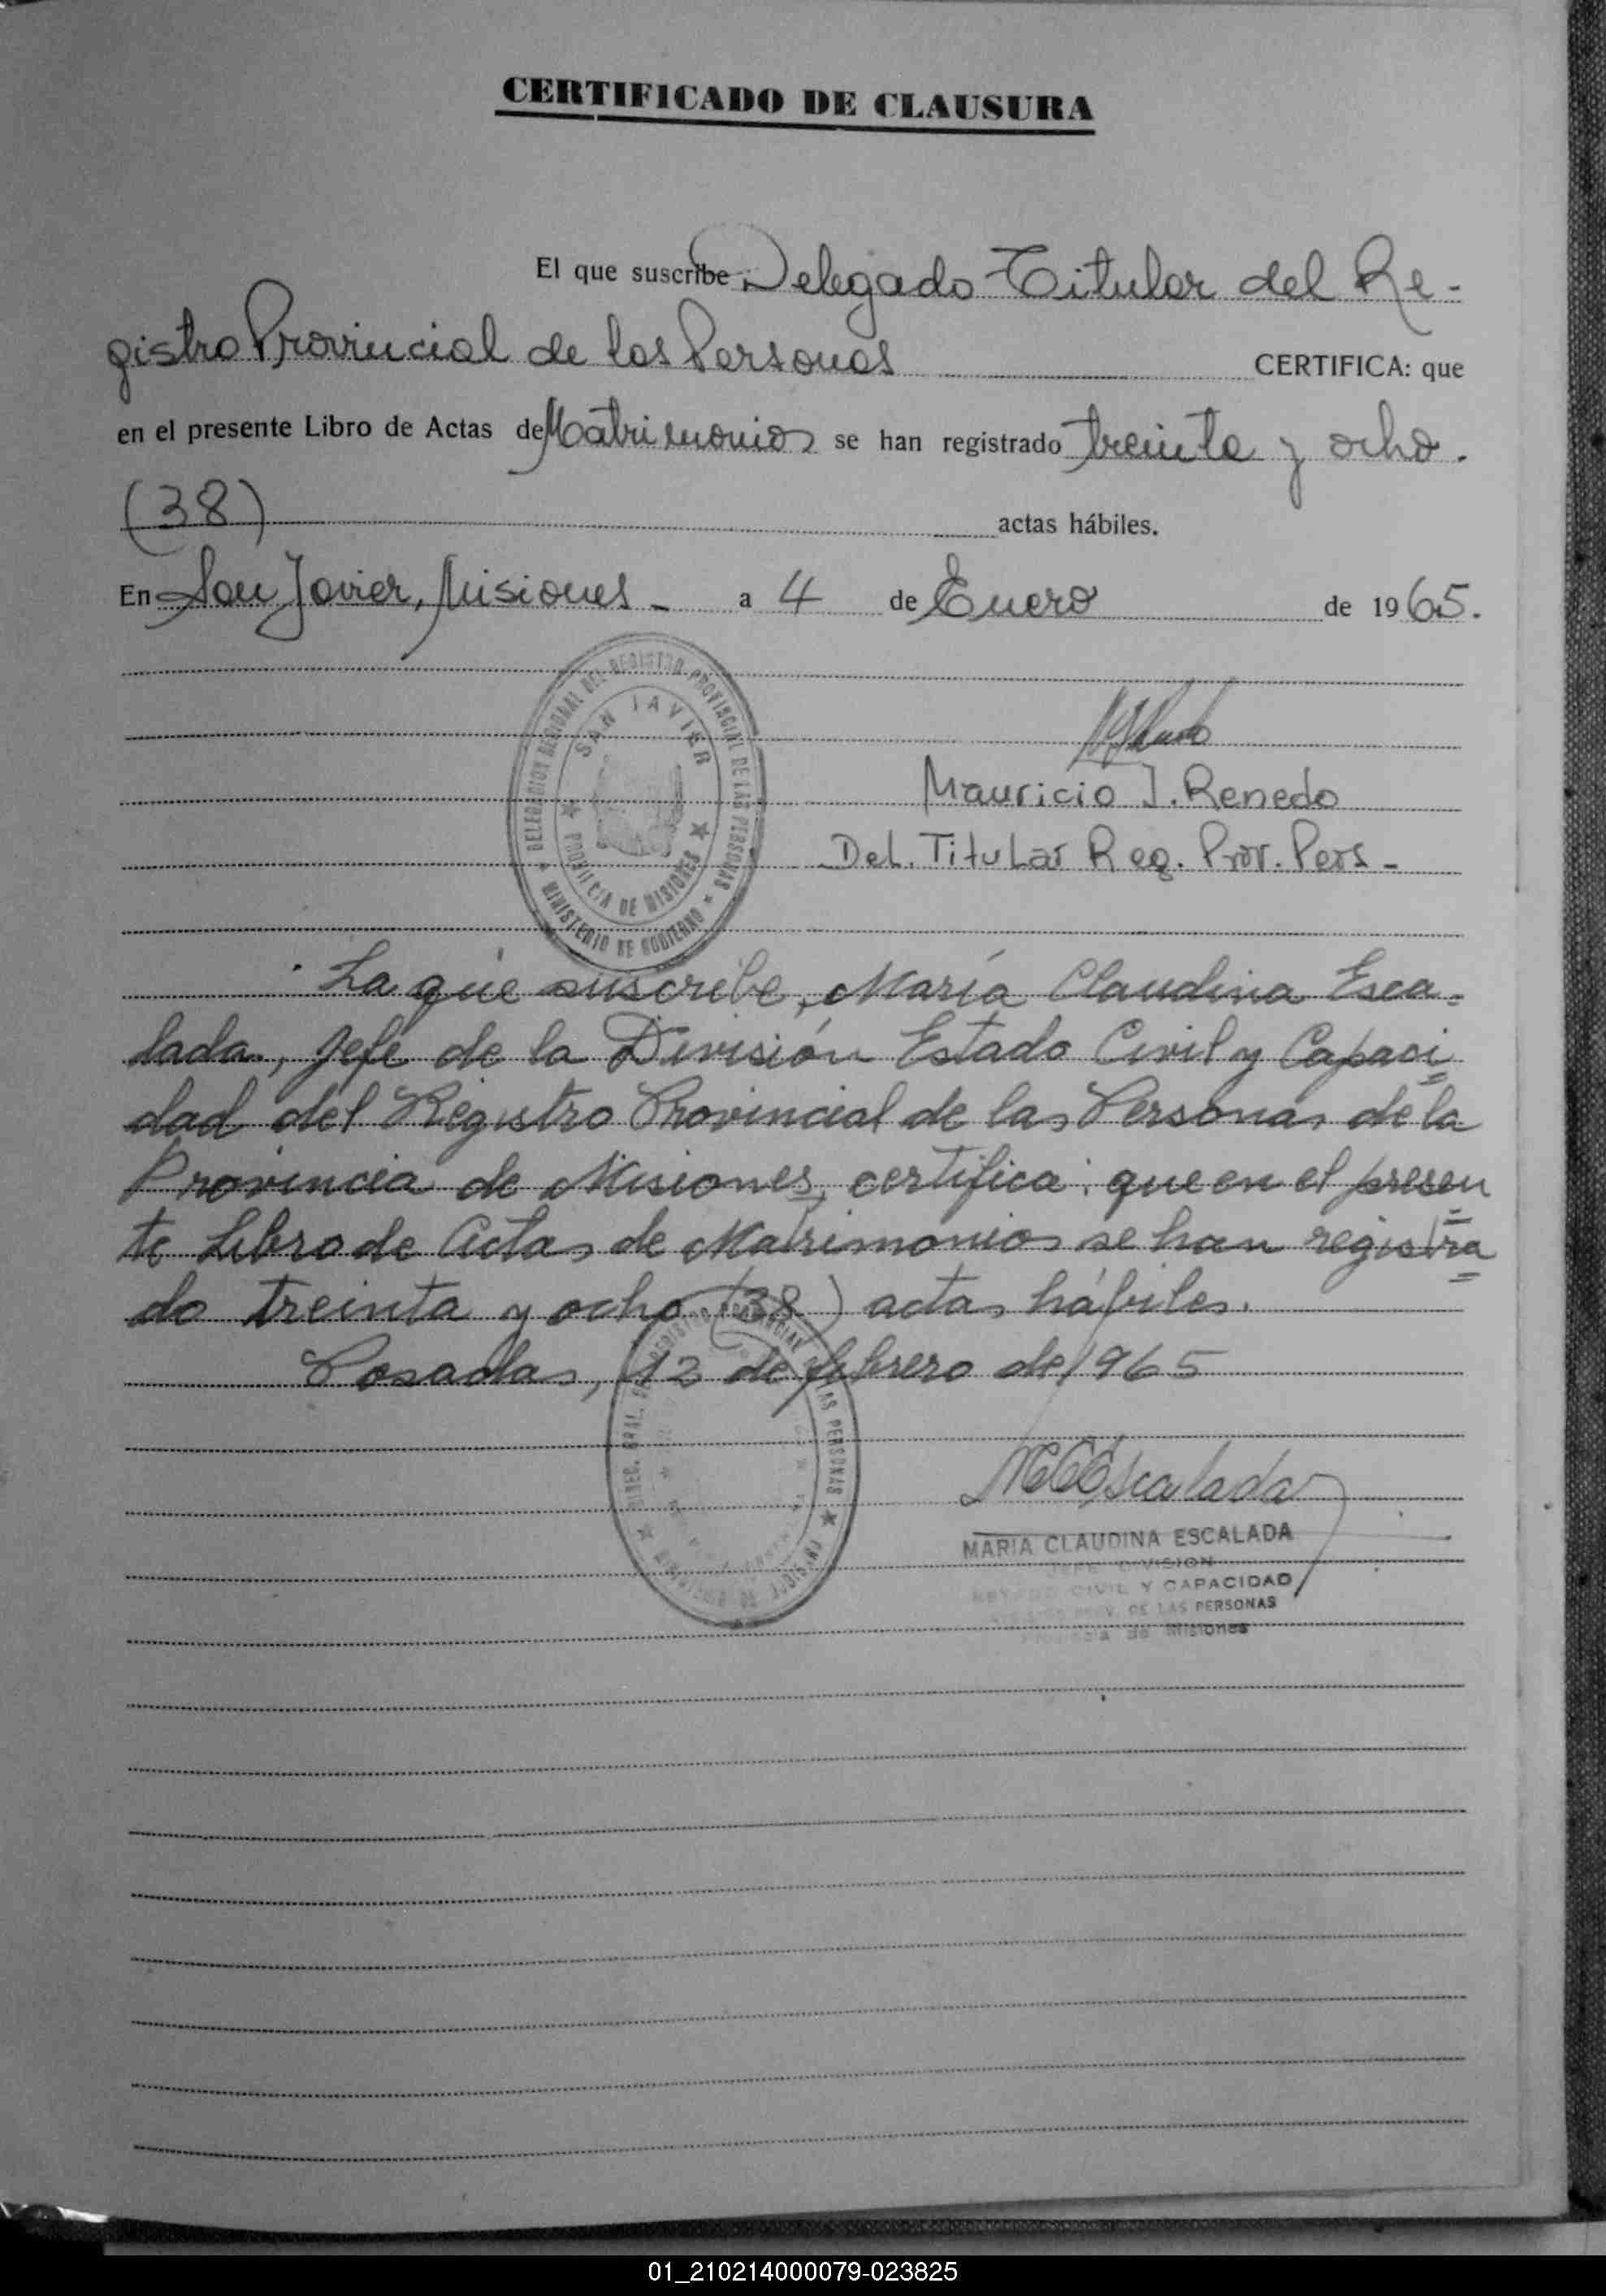 CERTIFICADO DE CLAUSURA
El que suscribe Delegado Titular del Re-
gistro Provincial de las Personas CERTIFICA: que
en el presente Libro de Actas de Matrimonios se han registrado treinta y ocho.
(38) actas hábiles.
En San Javier, Misiones - a 4 de Enero de 1965.
DELEGACION REGIONAL DEL REGISTRO PROVINCIAL DE LAS PERSONAS
SAN JAVIER
PROVINCIA DE MISIONES
MINISTERIO DE GOBIERNO
Mauricio J. Renedo
Del. Titular Reg. Prov. Pers-
La que suscribe, María Claudina Esca-
lada, Jefe de la División Estado Civil y Capaci
dad del Registro Provincial de las Personas de la
Provincia de Misiones, certifica: que en el presen
te Libro de Actas de Matrimonios se han registra
do treinta y ocho (38) actas hábiles.
Posadas, 12 de febrero de 1965
DIREC. GRAL. DEL REGISTRO PROVINCIAL DE LAS PERSONAS
MCEscalada
MARIA CLAUDINA ESCALADA
JEFE DIVISION
ESTADO CIVIL Y CAPACIDAD
PROV. DE LAS PERSONAS
Provincia de Misiones
01_210214000079-023825